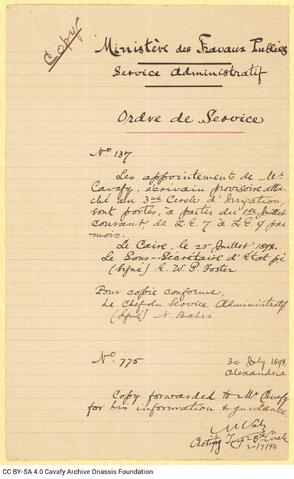 Copy
Ministère des Travaux Publics
Service Administratif
Ordre de Service
No. 137
Les appointements de Mr.
Cavafy, écrivain provisoire atta-
ché au 3me Cercle d'Irrigation,
sont portés, à partir du 1er Juillet
courant de L.E. 7 à L.E. 9 par
mois.
Le Caire, le 25 Juillet
Le Sous-Secrétaire d'Etat
(Signé) E. W. P. Foster
Pour copie conforme
Le Chef du Service Administratif
(Signé) N Bahri
No. 775
30 July
Alexandria
Copy forwarded to Mr Cavafy
for his information & guidance
CC BY-SA 4.0 Cavafy Archive Onassis Foundation